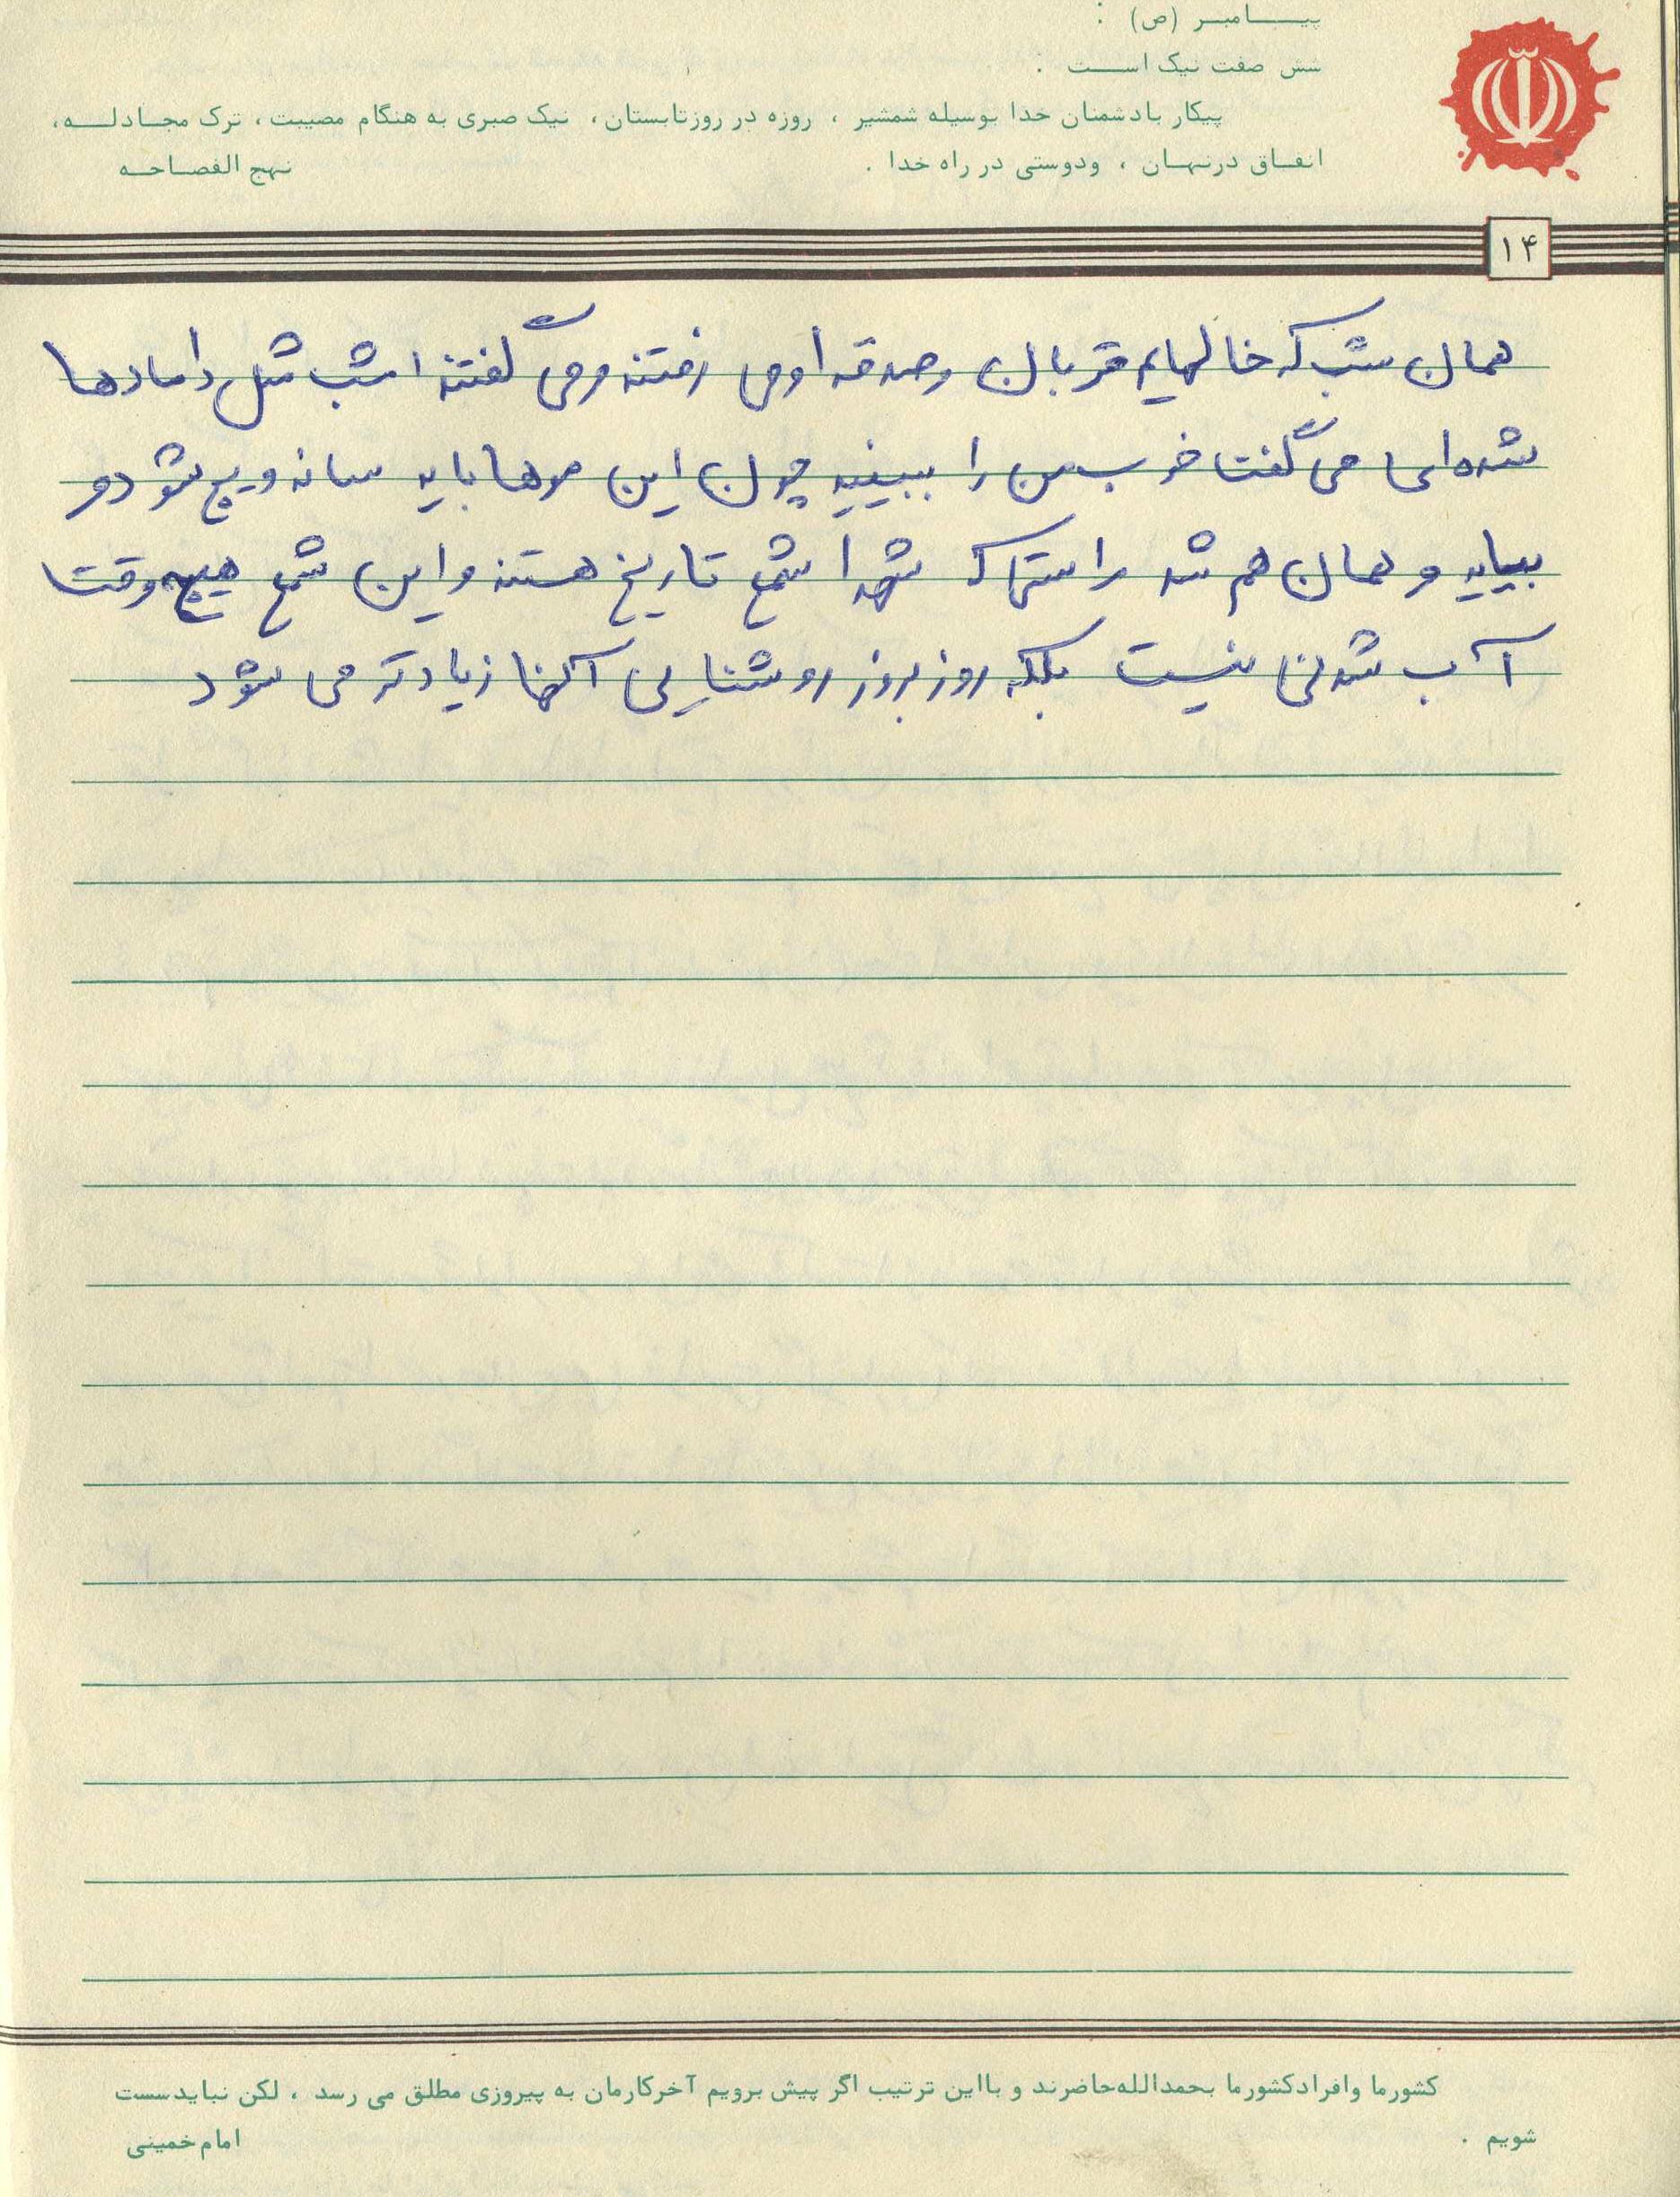 پیـــامبـر (ص) :
شش صفت نیک اســت .
پیکار بادشمنان خدا بوسیله شمشیر ، روزه در روزتابستان، نیک صبری به هنگام مصیبت ، ترک مجـادلــه،
انفـاق درنهـان ، ودوستی در راه خدا .
نهج الفصـاحـه
۱۴
همان شب که خالهایم قربان وصدقه او می رفتند ومی گفتند امشب مثل دامادها
شده‌ای می گفت خوب من را ببینید چون این موها باید شانه و پیچ شود و
بیاید و همان هم شد راستی که شهدا شمع تاریخ هستند و این شمع هیچ وقت
آب شدنی نیست بلکه روز بروز روشنایی آنها زیادتر می شود
کشورما وافرادکشورما بحمدالله‌حاضرند و بااین ترتیب اگر پیش برویم آخرکارمان به پیروزی مطلق می رسد ، لکن نبایدسست
شویم .
امام‌خمینی